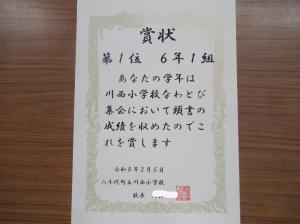 賞状
第1位 6年1組
あなたの学年は
川西小学校なわとび
集会において頭書の
成績を収めたのでこ
れを賞します
令和8年2月5日
八千代町立川西小学校
校長